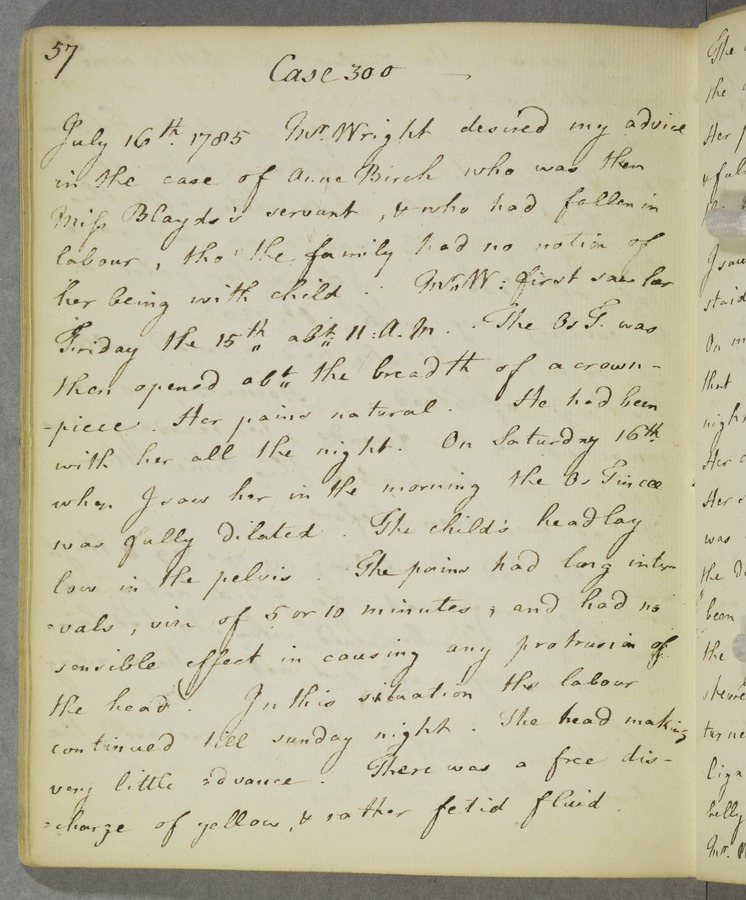 57
Case 300
July 16th. 1785 Mr. Wright desired my advice
in the case of Anne Birch who was then
Miss Blayds's servant, & who had fallen in
labour, tho' the family had no notion of
her being with child. Mr. W: first saw her
Friday the 15th abt 11: A.M. The Os T. was
then opened abt the breadth of a crown-
-piece. Her pains natural. He had been
with her all the night. On Saturday 16th
when I saw her in the morning the Os Tincæ
was fully dilated. The child's head lay
low in the pelvis. The pains had long inter-
=vals, viz. of 5 or 10 minutes; and had no
sensible effect in causing any protrusion of
the head. In this situation the labour
continued till sunday night. The head making
very little advance. There was a free dis-
=charge of yellow, & rather fetid fluid.
The
the
Her
I saw
On
that
Her
Her
was
the
been
the
Mr.